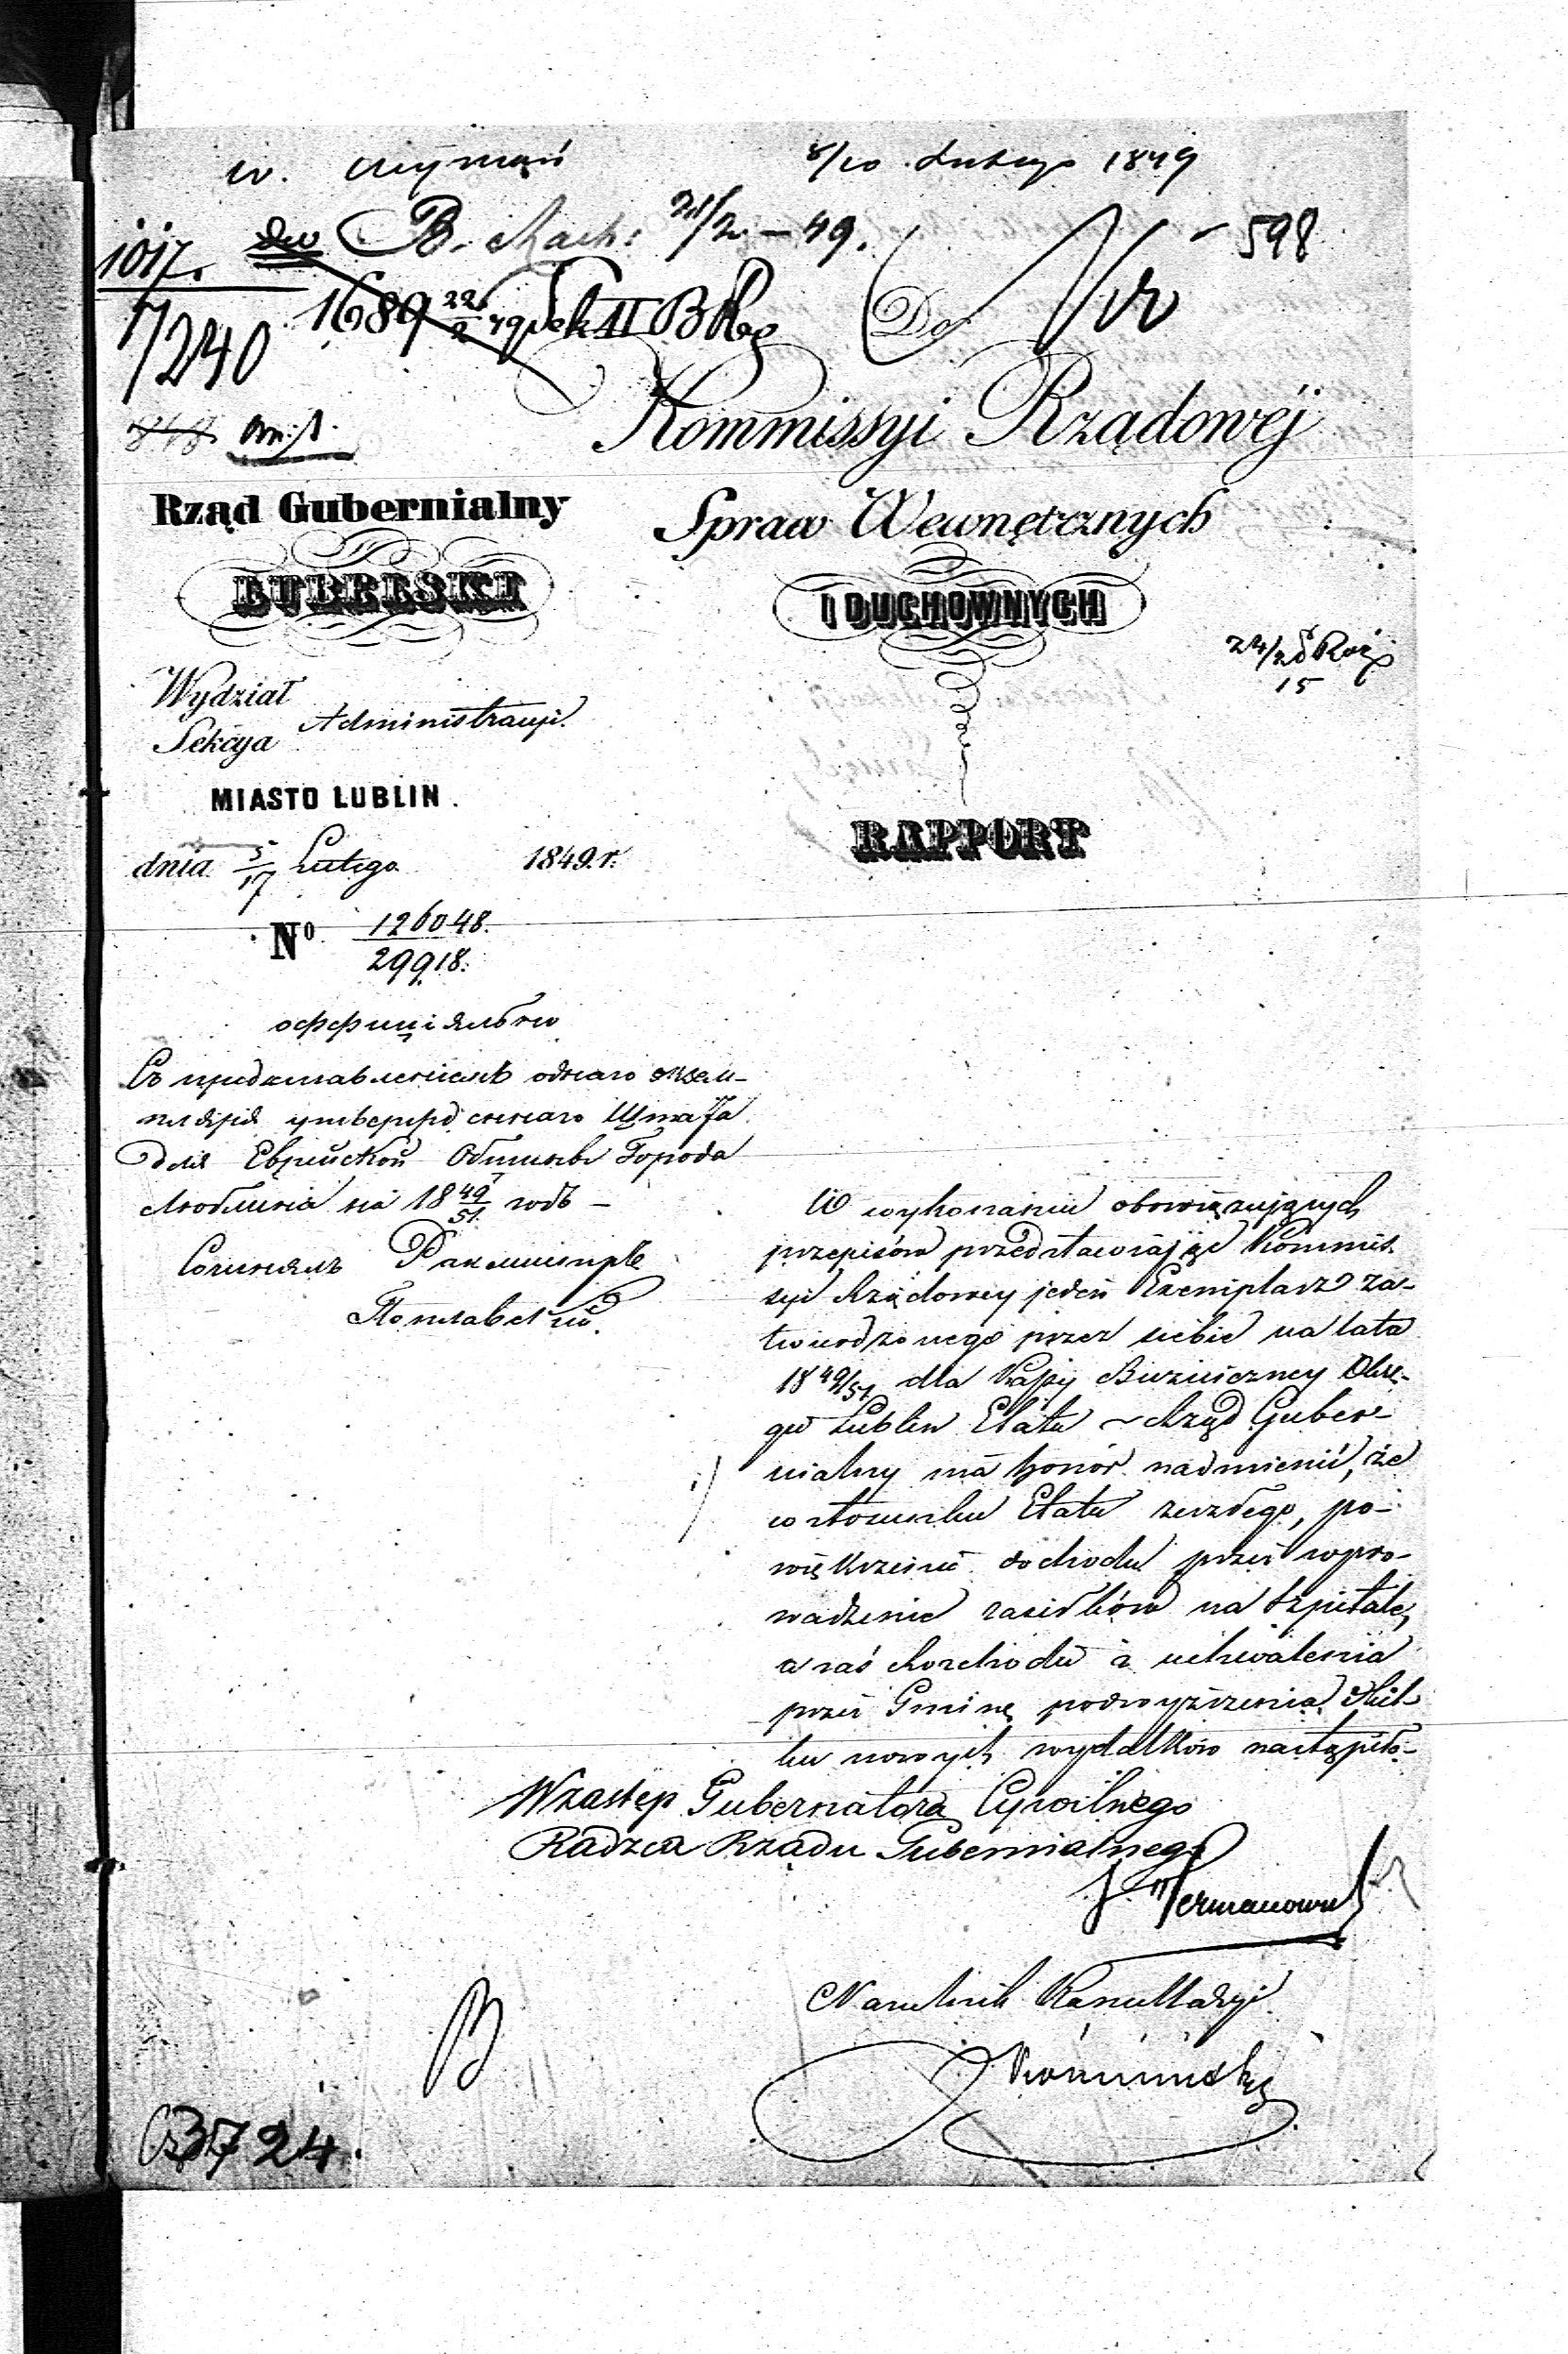 8/20 Lutego 1849
do B. Rach: 21/2 – 49.
598
1017.
1689 22/2 49 Sek II B
7240
Do
Kommissyi Rządowéj
Rząd Gubernialny
Spraw Wewnętrznych
LUBELSKI
I DUCHOWNYCH
24/28
15
Wydział
Sekcya
Administracyi.
MIASTO LUBLIN.
RAPPORT
dnia 5/17 Lutego 1849. r.
No 126048.
29918.
оффиціяльно
Съ представленіемъ одного экзем-
пляра утвержденнаго Штата
для Еврейской Общины Города
Люблина на 18 49/51 годъ –
Сочинялъ
W wykonaniu obowiązujących
przepisów przedstawiając Kommis-
syi Rządowey jeden Exemplarz za-
twierdzonego przez siebie na lata
18 49/51 dla Kassy Bużniczney Okrę-
gu Lublin Etatu – Rząd Guber-
nialny ma honor nadmienić, że
w stosunku Etatu zeszłego, po-
większenie dochodu przez wpro-
wadzenie zasiłków na Szpitale,
a zaś Rozchodu z uchwalenia
przez Gminę podwyższenia kil-
ku nowych wydatków nastąpiło–
W zastęp Gubernatora Cywilnego
Radzca Rządu Gubernialnego
Naczelnik Kancellaryi
B
3724.